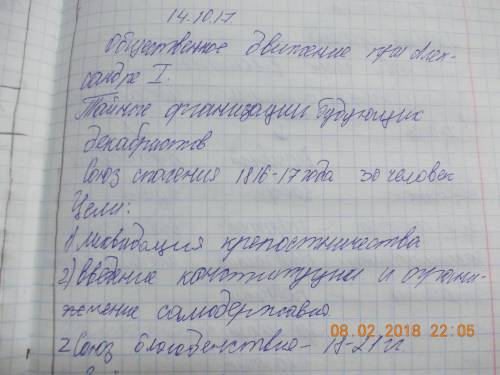 14.10.17
Общественное движение при Алек-
сандре I.
Тайные организации будующих
декабристов
Союз спасения 1816-17 года 30 человек
Цели:
1) Ликвидация крепостничества
2) Введение конституции и ограни-
жение самодержавия
2 Союз благоденствия - 18-21 гг
08.02.2018 22:05